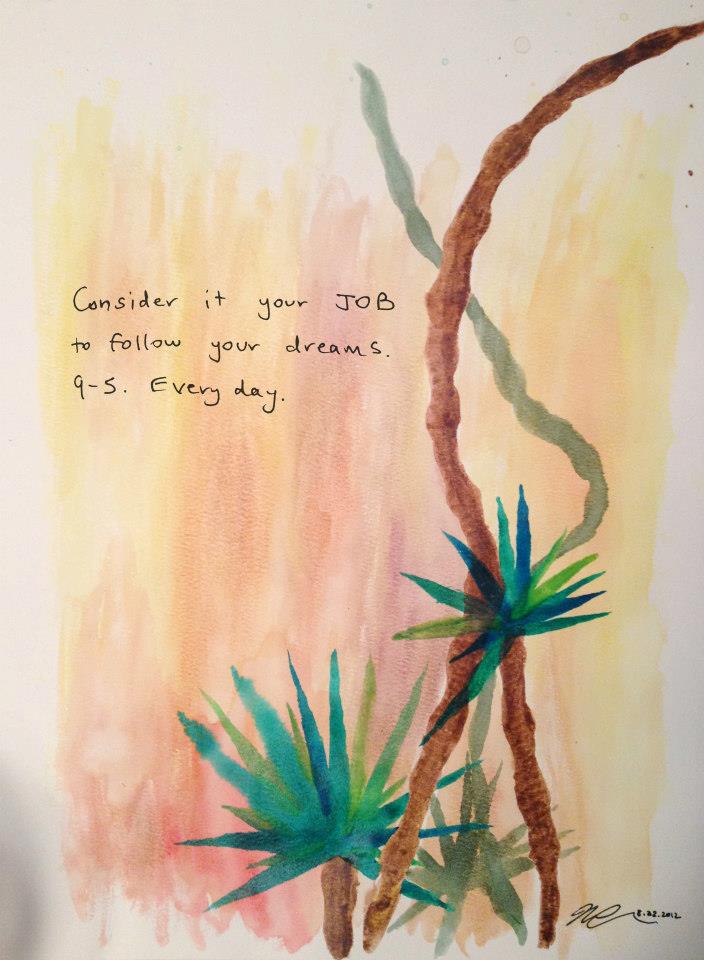 Consider it your JOB
to follow your dreams.
9-5. Every day.
8.22.2012